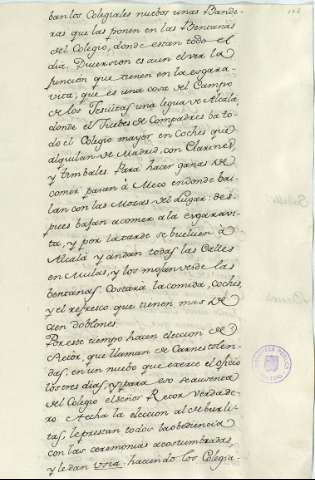 ban los Colegiales nuebos unas Bande
ras que las ponen en las Bentanas
del Colegio, donde estan todo el
dia. Divierten es aun el ver la
funcion que tienen en la esgara
vita, que es una casa del Campo
de los Jesuitas una legua de Alcala,
donde el Juebes de Compadres ba to
do el Colegio mayor en Coches que
alquilan de Madrid, con Clarines,
y timbales. Para hacer ganas de
comer paran á Meco en donde bai
lan con las Mozas del Lugar: des
pues bajan a comer a la esgaravi
ta, y por la tarde se buelven á
Alcala y andan todas las Calles
en Mulas, y los mojan desde las
bentanas. Costara la comida, coches,
y el refresco que tienen mas de
cien doblones.
Por este tiempo hacen eleccion de
Retor, que llaman de Carnestolen
das, en un nuebo que exerce el oficio
los tres dias, y para eso se ausenta
del Colegio el señor Retor verdade
ro. Hecha la eleccion al de burli
tas, le prestan todos la obediencia
con las ceremonias acostumbradas,
y le dan Usia: haciendo los Colegia-